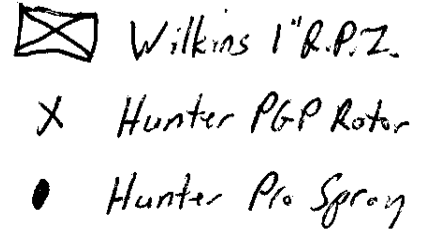 Wilkins 1" R.P.Z.
X Hunter PGP Rotor
Hunter Pro Spray